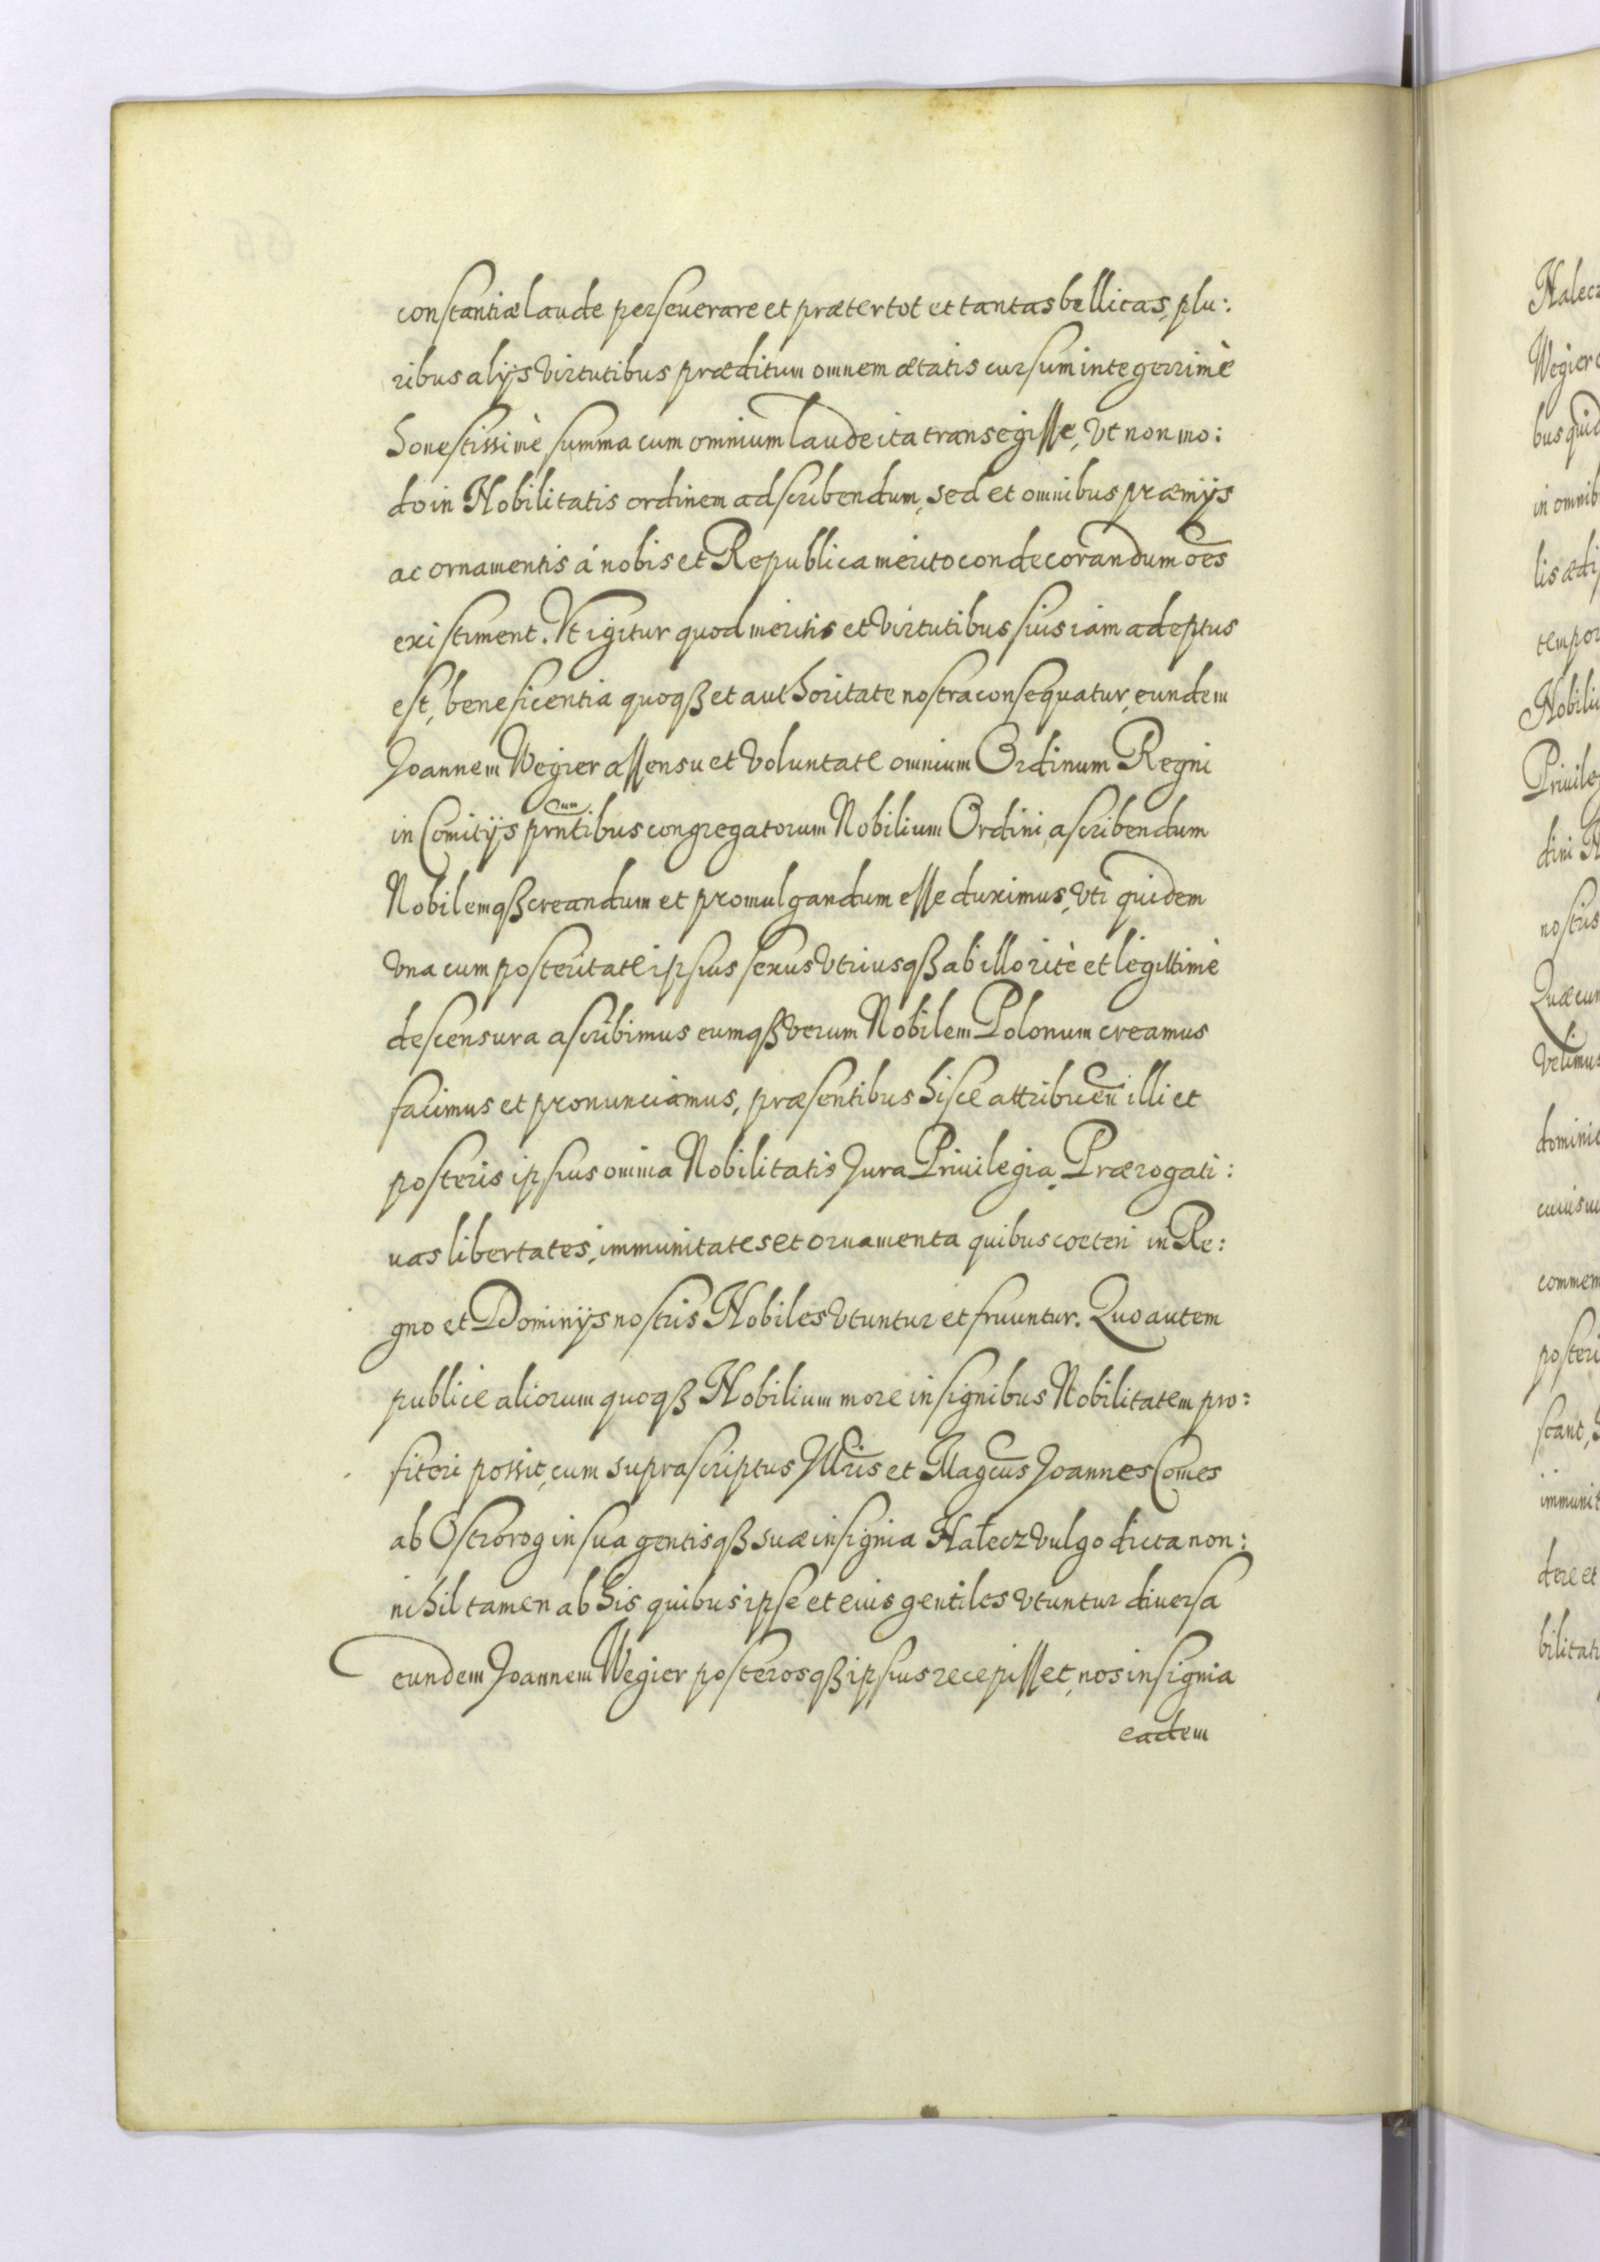 constantiæ laude perseuerare et præter tot et tantas bellicas, plu:
ribus alijs virtutibus præditum omnem ætatis cursum integerrimè
honestissimè summa cum omnium laude ita transegisse, vt non mo:
do in Nobilitatis ordinem adscribendum, sed et omnibus præmijs
ac ornamentis á nobis et Republica merito condecorandum oẽs
existiment. Vt igitur quod meritis et virtutibus suis iam adeptus
est, beneficentia quoqꝫ et authoritate nostra consequatur, eundem
Joannem Wegier assensu et voluntate omnium Ordinum Regni
in Comitijs prñtibus congregatorum Nobilium Ordini ascribendum
Nobilemqꝫ creandum et promulgandum esse duximus, vti quidem
vna cum posteritate ipsius sexus vtriusqꝫ ab illo ritè et legittimè
descensura ascribimus eumqꝫ verum Nobilem Polonum creamus
facimus et pronunciamus, præsentibus hisce attribueñ illi et
posteris ipsius omnia Nobilitatis Jura Priuilegia, Prærogati:
uas libertates, immunitates et ornamenta quibus cœteri in Re:
gno et Dominijs nostris Nobiles vtuntur et fruuntur. Quo autem
publice aliorum quoqꝫ Nobilium more insignibus Nobilitatem pro:
fiteri possit, cum suprascriptus Jllr̃is et Magc̃us Joannes Comes
ab Ostrorog in sua gentisqꝫ suæ insignia Nałecz vulgo dicta non:
nihil tamen ab his quibus ipse et eius gentiles vtuntur diuersa
eundem Joannem Wegier posterosqꝫ ipsius recepisset, nos insignia
eadem
Nalecz
Wegier
bus quid
in omnib
lis ædi
tempor
Nobiliu
Priuileg
dini N
nostris
Quæcun
velimus
dominic
cuiusu
commem
posteri
scant,
immunit
dere et
bilitati